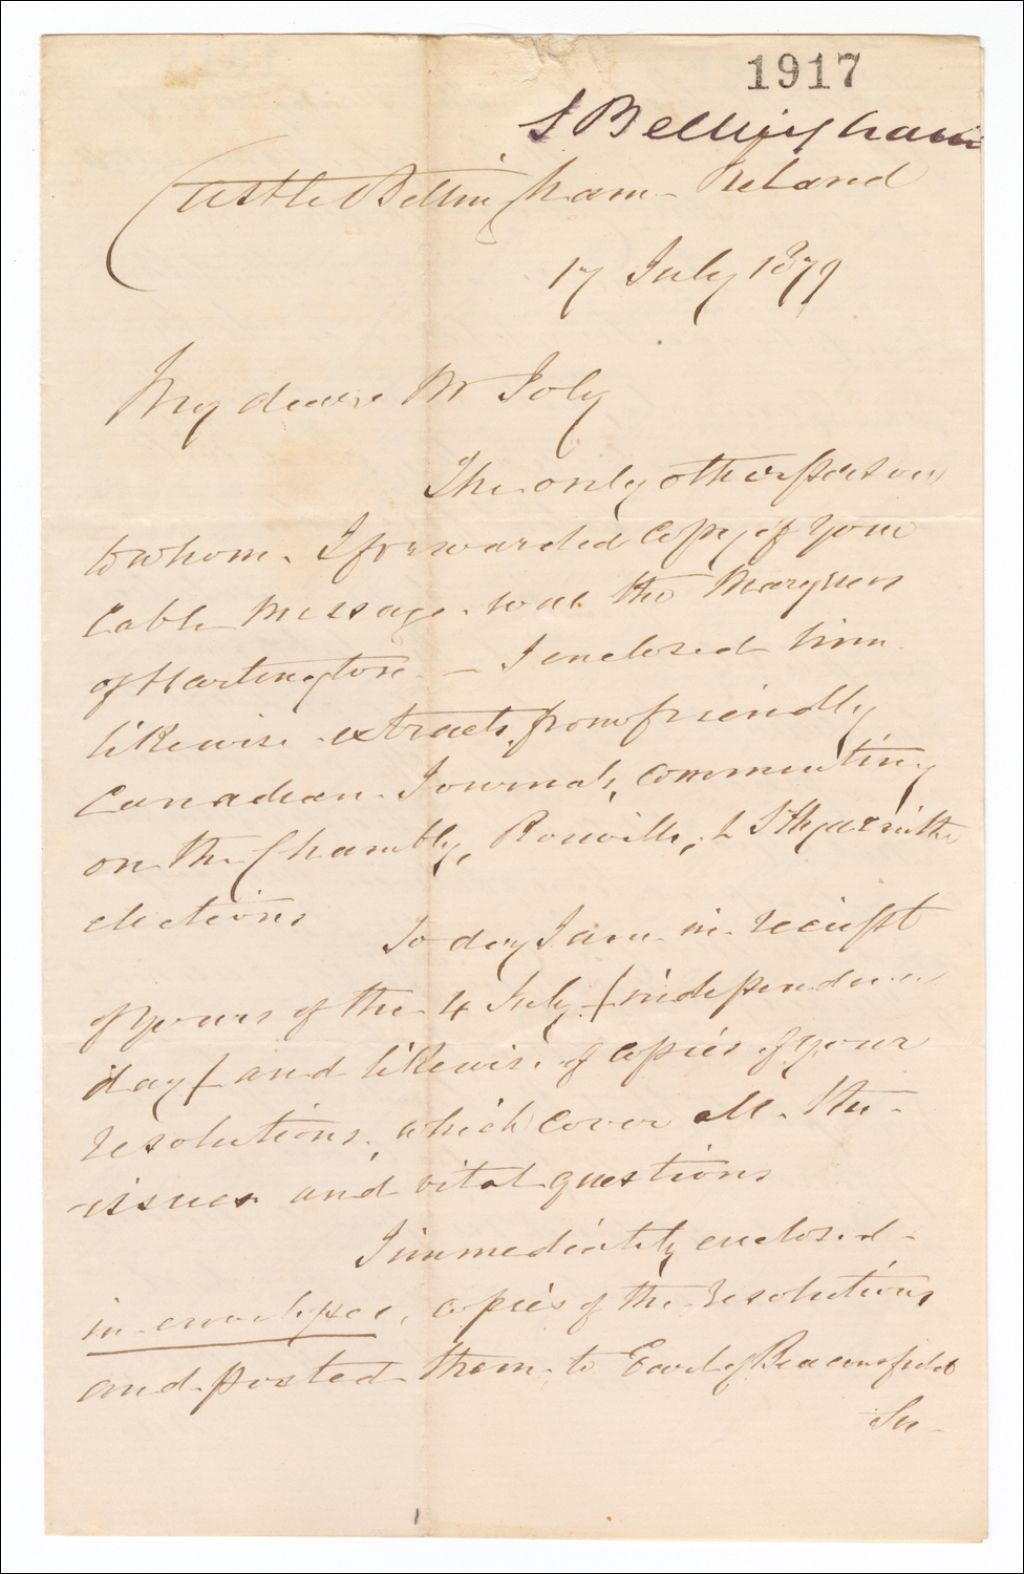 1917
S Bellingham
Castle Bellingham - Ireland
17 July 1879
My dear Mr Joly
The only other person
to whom I forwarded copy of your
Cable message was the Marquess
of Hartington - I enclosed him
likewise extracts from friendly
Canadian Journals, commenting
on the Chambly, Rouville, & St Hyacinthe
elections
To day I am in receipt
of yours of the 4 July (independence
day) and likewise of copies of your
resolutions, which cover all the
issues and vital questions
I immediately enclosed
in envelopes, copies of the resolutions
and posted them to Earl of Beaconsfield